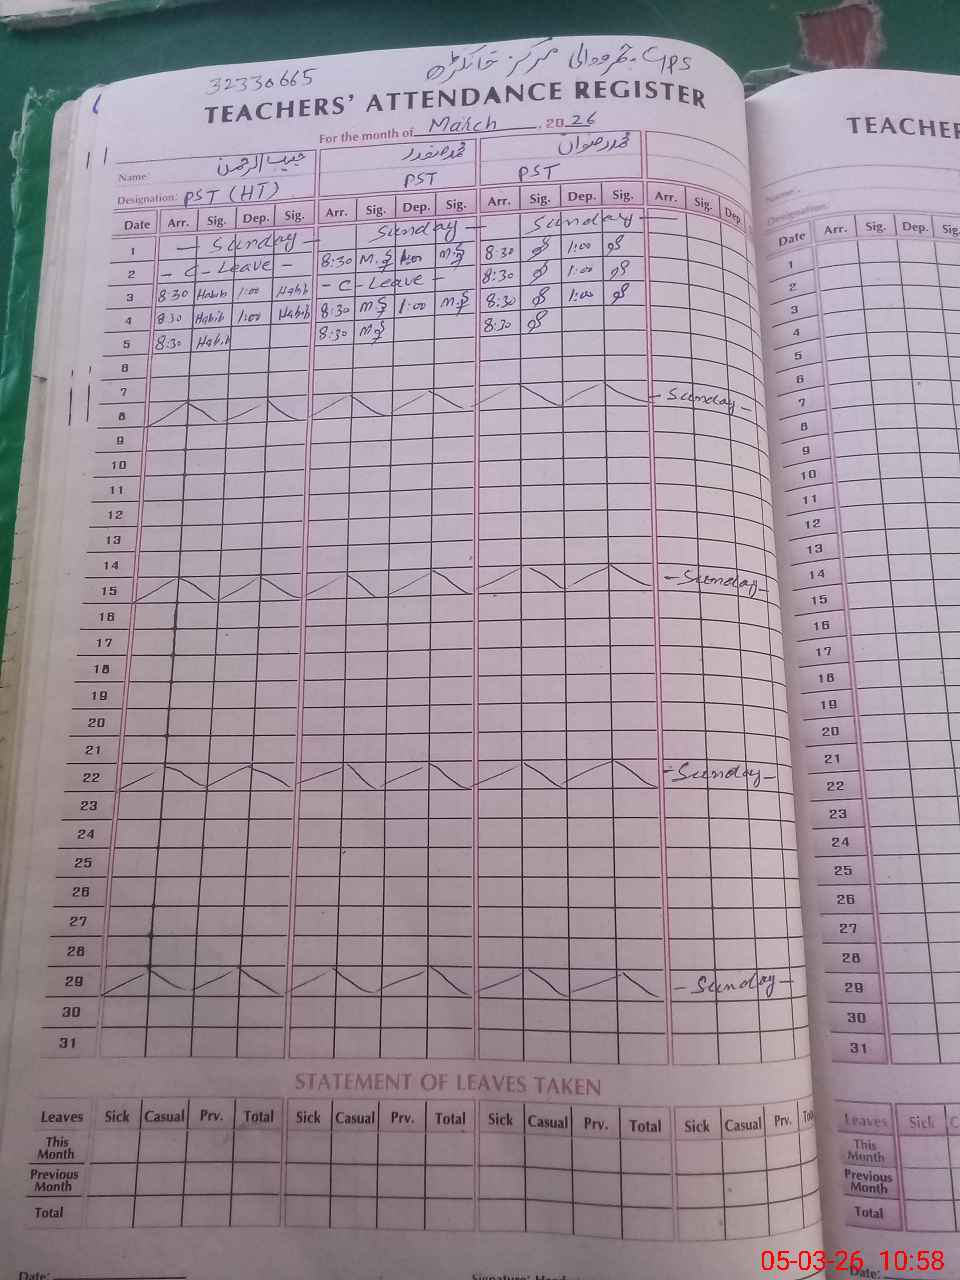 32330665 GPS جھرووالی مرکز خانگڑھ
TEACHERS' ATTENDANCE REGISTER
For the month of March, 2026
Name: حبیب الرحمن محمد صفدر محمد رضوان
Designation: PST (HT) PST PST
Date Arr. Sig. Dep. Sig. Arr. Sig. Dep. Sig. Arr. Sig. Dep. Sig. Arr. Sig. Dep.
1 — Sunday — Sunday — Sunday —
2 - C - Leave - 8:30 M.S 1:00 M.S 8:30 1:00
3 8:30 Habib 1:00 Habib - C - Leave - 8:30 1:00
4 8:30 Habib 1:00 Habib 8:30 M.S 1:00 M.S 8:30 1:00
5 8:30 Habib 8:30 M.S 8:30
6
7
8 — Sunday —
9
10
11
12
13
14
15 — Sunday —
16
17
18
19
20
21
22 — Sunday —
23
24
25
26
27
28
29 — Sunday —
30
31
STATEMENT OF LEAVES TAKEN
Leaves Sick Casual Prv. Total Sick Casual Prv. Total Sick Casual Prv. Total Sick Casual Prv.
This Month
Previous Month
Total
Date:
TEACHER
Name:
Designation:
Date Arr. Sig. Dep. Sig.
1
2
3
4
5
6
7
8
9
10
11
12
13
14
15
16
17
18
19
20
21
22
23
24
25
26
27
28
29
30
31
Leaves Sick
This Month
Previous Month
Total
Date:
05-03-26 10:58